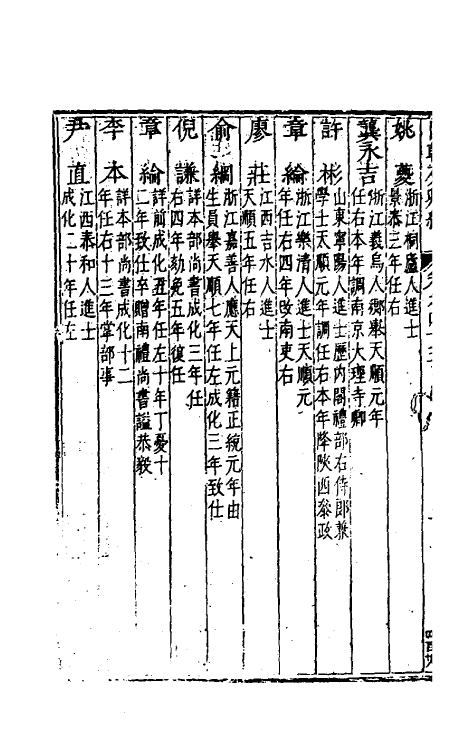 姚夔
浙江桐廬人進士
景泰三年任右
龔永吉
浙江義烏人鄉舉天順元年
任右本年調南京大理寺卿
許彬
山東寧陽人進士歷內閣禮部右侍郎兼
學士天順元年調任右本年降陝西叅政
章綸
浙江樂清人進士天順元
年任右四年改南吏右
廖莊
江西吉水人進士
天順五年任右
俞綱
浙江嘉善人應天上元籍正統元年由
生員舉天順七年任左成化三年致仕
倪謙
詳本部尚書成化三年任
右四年劾免五年復任
章綸
詳前成化丑年任左十年丁憂十
二年致仕卒贈南禮尚書謚恭毅
李本
詳本部尚書成化十二
年任右十三年掌部事
尹直
江西泰和人進士
成化二十年任左